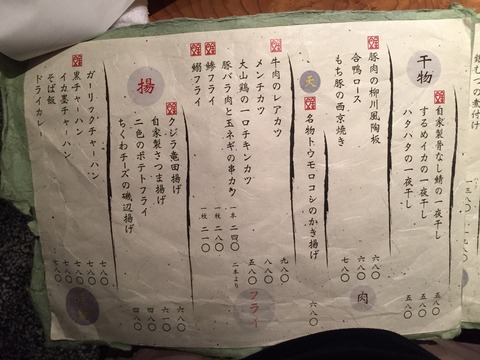 干物
自家製骨なし鯖の一夜干し 五八〇
するめイカの一夜干し 五八〇
ハタハタの一夜干し 五八〇
肉
豚肉の柳川風陶板 六八〇
合鴨ロース 六八〇
もち豚の西京焼き 七八〇
天
名物トウモロコシのかき揚げ 六八〇
フライ
牛肉のレアカツ 九八〇
メンチカツ 八八〇
大山鶏の一口チキンカツ 五八〇
豚バラ肉と玉ネギの串カツ 一本 二四〇 二本より
鯵フライ 一枚 二八〇
鰯フライ 一枚 二一〇
揚
クジラ竜田揚げ 六八〇
自家製さつま揚げ 六一〇
二色のポテトフライ 四八〇
ちくわチーズの磯辺揚げ 四八〇
ガーリックチャーハン 七八〇
黒チャーハン 七八〇
イカ墨チャーハン 七八〇
そば飯 七八〇
ドライカレー 七八〇